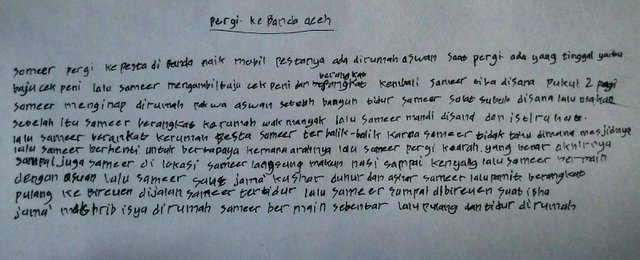 pergi ke Banda aceh
sameer pergi ke pesta di Banda naik mobil pestanya ada dirumah aswan saat pergi ada yang tinggal yaitu
baju cek peni lalu sameer mengambil baju cek peni dan berangkat kembali sameer tiba disana pukul 2 pagi
sameer menginap dirumah pakwa aswan setelah bangun tidur sameer solat subuh disana lalu makan
setelah itu sameer berangkat kerumah wak nunyak lalu sameer mandi disana dan istirahat.
lalu sameer berangkat kerumah pesta sameer terbalik-balik karea sameer tidak tahu dimana mesjidnya
lalu sameer berhenti untuk bertanya kemana arahnya lalu sameer pergi kearah yang benar akhirnya
sampai juga sameer di lokasi sameer langsung makan nasi sampai kenyang lalu sameer bermain
dengan aswan lalu sameer jama' kushar duhur dan ashar sameer lalu pamit berangkat
pulang ke bireuen dijalan sameer tertidur lalu sameer sampai dibireuen saat isha
jama' maghrib isya dirumah sameer bermain sebentar lalu pulang dan tidur dirumah